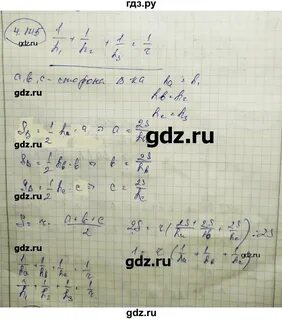 гдз.ру
4.1115 1/h₁ + 1/h₂ + 1/h₃ = 1/r
a, b, c - стороны Δ ка hₐ = h₁
h_b = h₂
h_c = h₃
S_Δ = 1/2 hₐ · a ⇒ a = 2S/hₐ
S_Δ = 1/2 h_b · b ⇒ b = 2S/h_b
S_Δ = 1/2 h_c · c ⇒ c = 2S/h_c
S = r · (a+b+c)/2 2S = r (2S/hₐ + 2S/h_b + 2S/h_c) :2S
1/hₐ + 1/h_b + 1/h_c = 1/r 1 = r (1/hₐ + 1/h_b + 1/h_c)
1/h₁ + 1/h₂ + 1/h₃ = 1/r
gdz.ru
gdz.ru
gdz.ru
гдз.ру